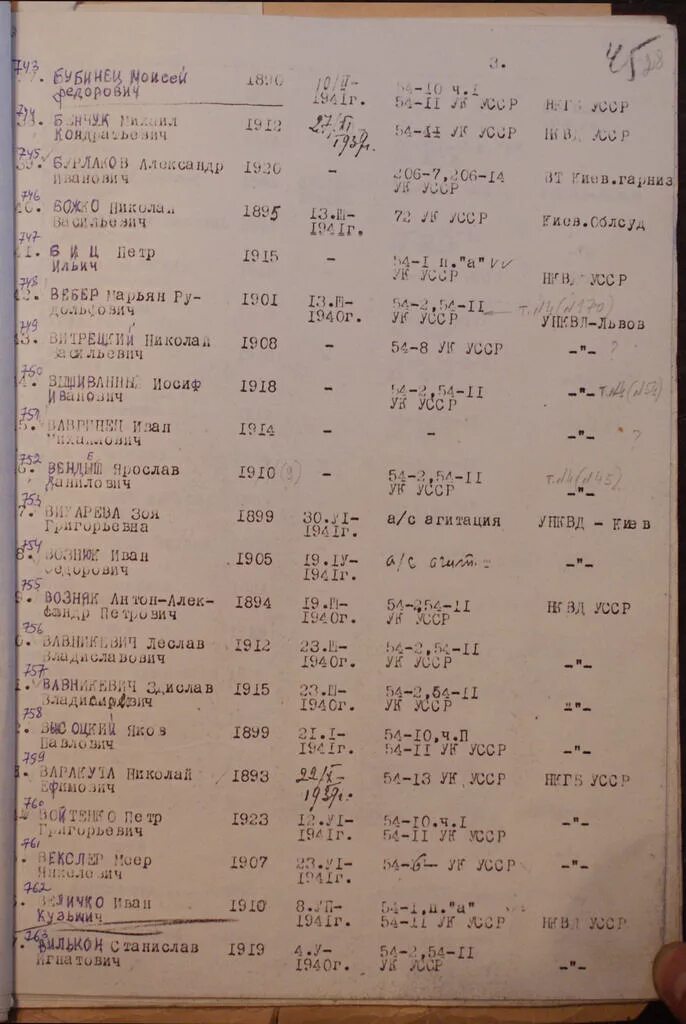 3.
45 28
743 БУБИНЕЦ Моисей 1890 10/II- 54-10 ч.I
Федорович 1941г. 54-II УК УССР НКГБ УССР
744 БЕНЧУК Михаил 1912 27/XI 54-II УК УССР НКВД УССР
Кондратьевич 1939г.
745 БУРЛАКОВ Александр 1920 - 206-7,206-14 ВТ Киев.гарниз
Иванович УК УССР
746 БОЖКО Николай 1895 13.Ш- 72 УК УССР Киев.Облсуд
Васильевич 1941г.
747 БИЦ Петр 1915 - 54-I п."а"
Ильич УК УССР НКВД УССР
748 ВЕБЕР Марьян Ру- 1901 13.Ш- 54-2,54-II т.№4(№170)
дольфович 1940г. УК УССР УНКВД-Львов
749 ВИТРЕЦКИЙ Николай 1908 - 54-8 УК УССР -"- ?
Васильевич
750 ВЫШИВАННЫЙ Иосиф 1918 - 54-2,54-II -"- т.№4(№54)
Иванович УК УССР
751 ВАВРИНЕЦ Иван 1914 - - -"- ?
Михайлович
752 ВЕНДЫШ Ярослав 1910 (?) - 54-2,54-II т.№4(№45)
Данилович УК УССР -"-
753 ВИГАРЕВА Зоя 1899 30.УI- а/с агитация УНКВД - Киев
Григорьевна 1941г.
754 ВОЗНЮК Иван 1905 19.IУ- а/с агит. -"-
Федорович 1941г.
755 ВОЗНЯК Антон-Алек- 1894 19.Ш- 54-2,54-II НКВД УССР
сандр Петрович 1940г. УК УССР
756 ВАВНИКЕВИЧ Леслав 1912 23.Ш- 54-2,54-II -"-
Владиславович 1940г. УК УССР
757 ВАВНИКЕВИЧ Здислав 1915 23.Ш- 54-2,54-II
Владиславович 1940г. УК УССР -"-
758 ВЫСОЦКИЙ Яков 1899 21.I- 54-10,ч.П
Павлович 1941г. 54-II УК УССР -"-
759 ВАРАКУТА Николай 1893 22/X 54-13 УК УССР НКГБ УССР
Ефимович 1939г.
760 ВОЙТЕНКО Петр 1923 12.УI- 54-10.ч.I -"-
Григорьевич 1941г. 54-II УК УССР
761 ВЕКСЛЕР Меер 1907 23.УI- 54-6- УК УССР -"-
1941г.
762 ВЕЛИЧКО Иван 1910 8.УП- 54-I,п."а"
Кузьмич 1941г. 54-II УК УССР НКВД УССР
763 ВИЛЬКОН Станислав 1919 4.У- 54-2,54-II
Игнатович 1940г. УК УССР -"-